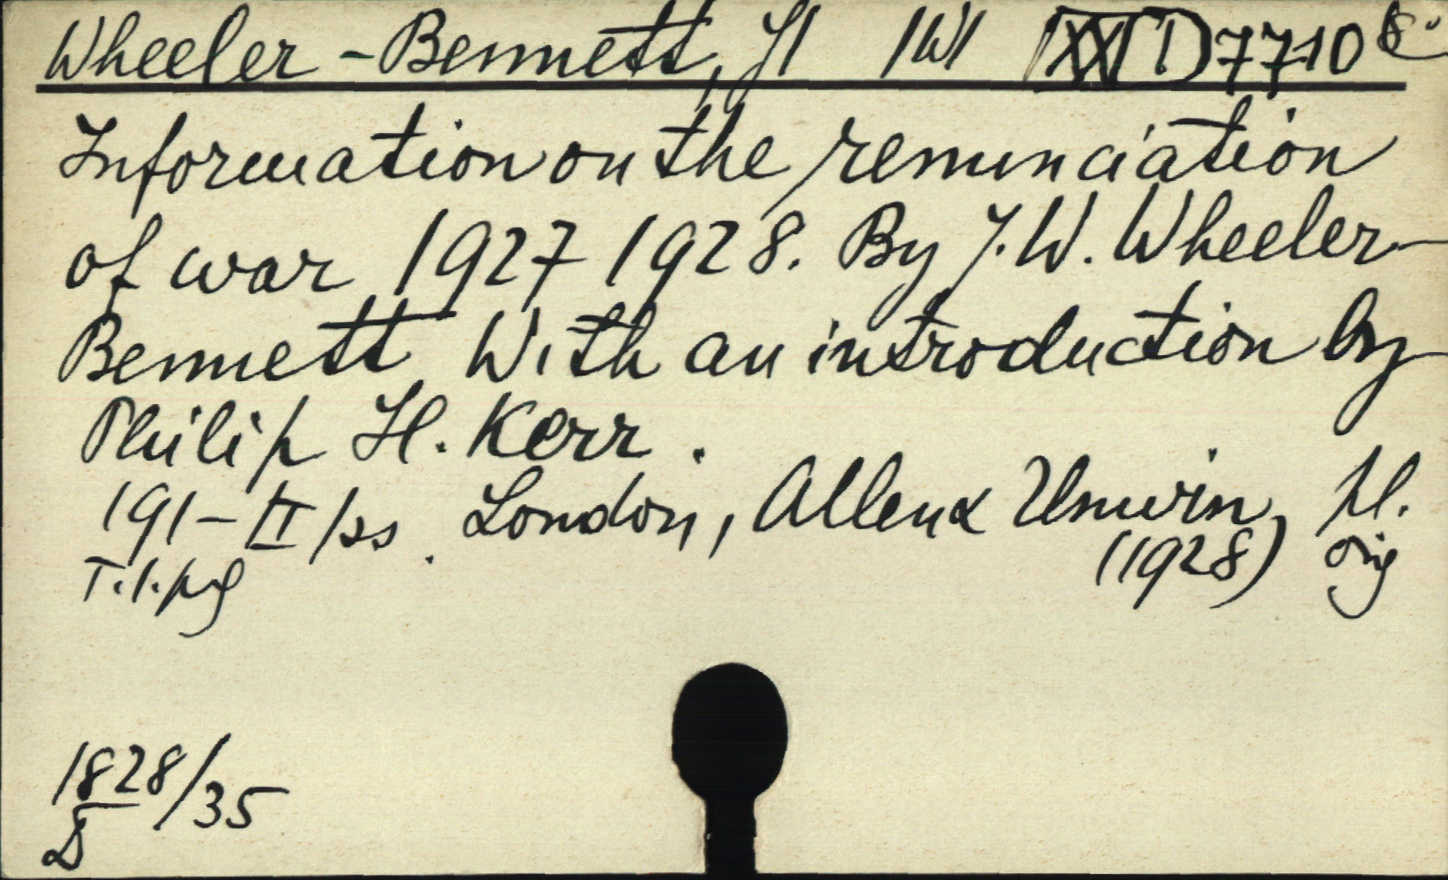 Wheeler-Bennett, J| |W| 7710
Information on the renunciation
of war 1927 1928. By J.W. Wheeler-
Bennett With an introduction by
Philip H. Kerr.
191-II/ss. London, Allen & Unwin,
T.1.pg (1928) orig
1828/35
D